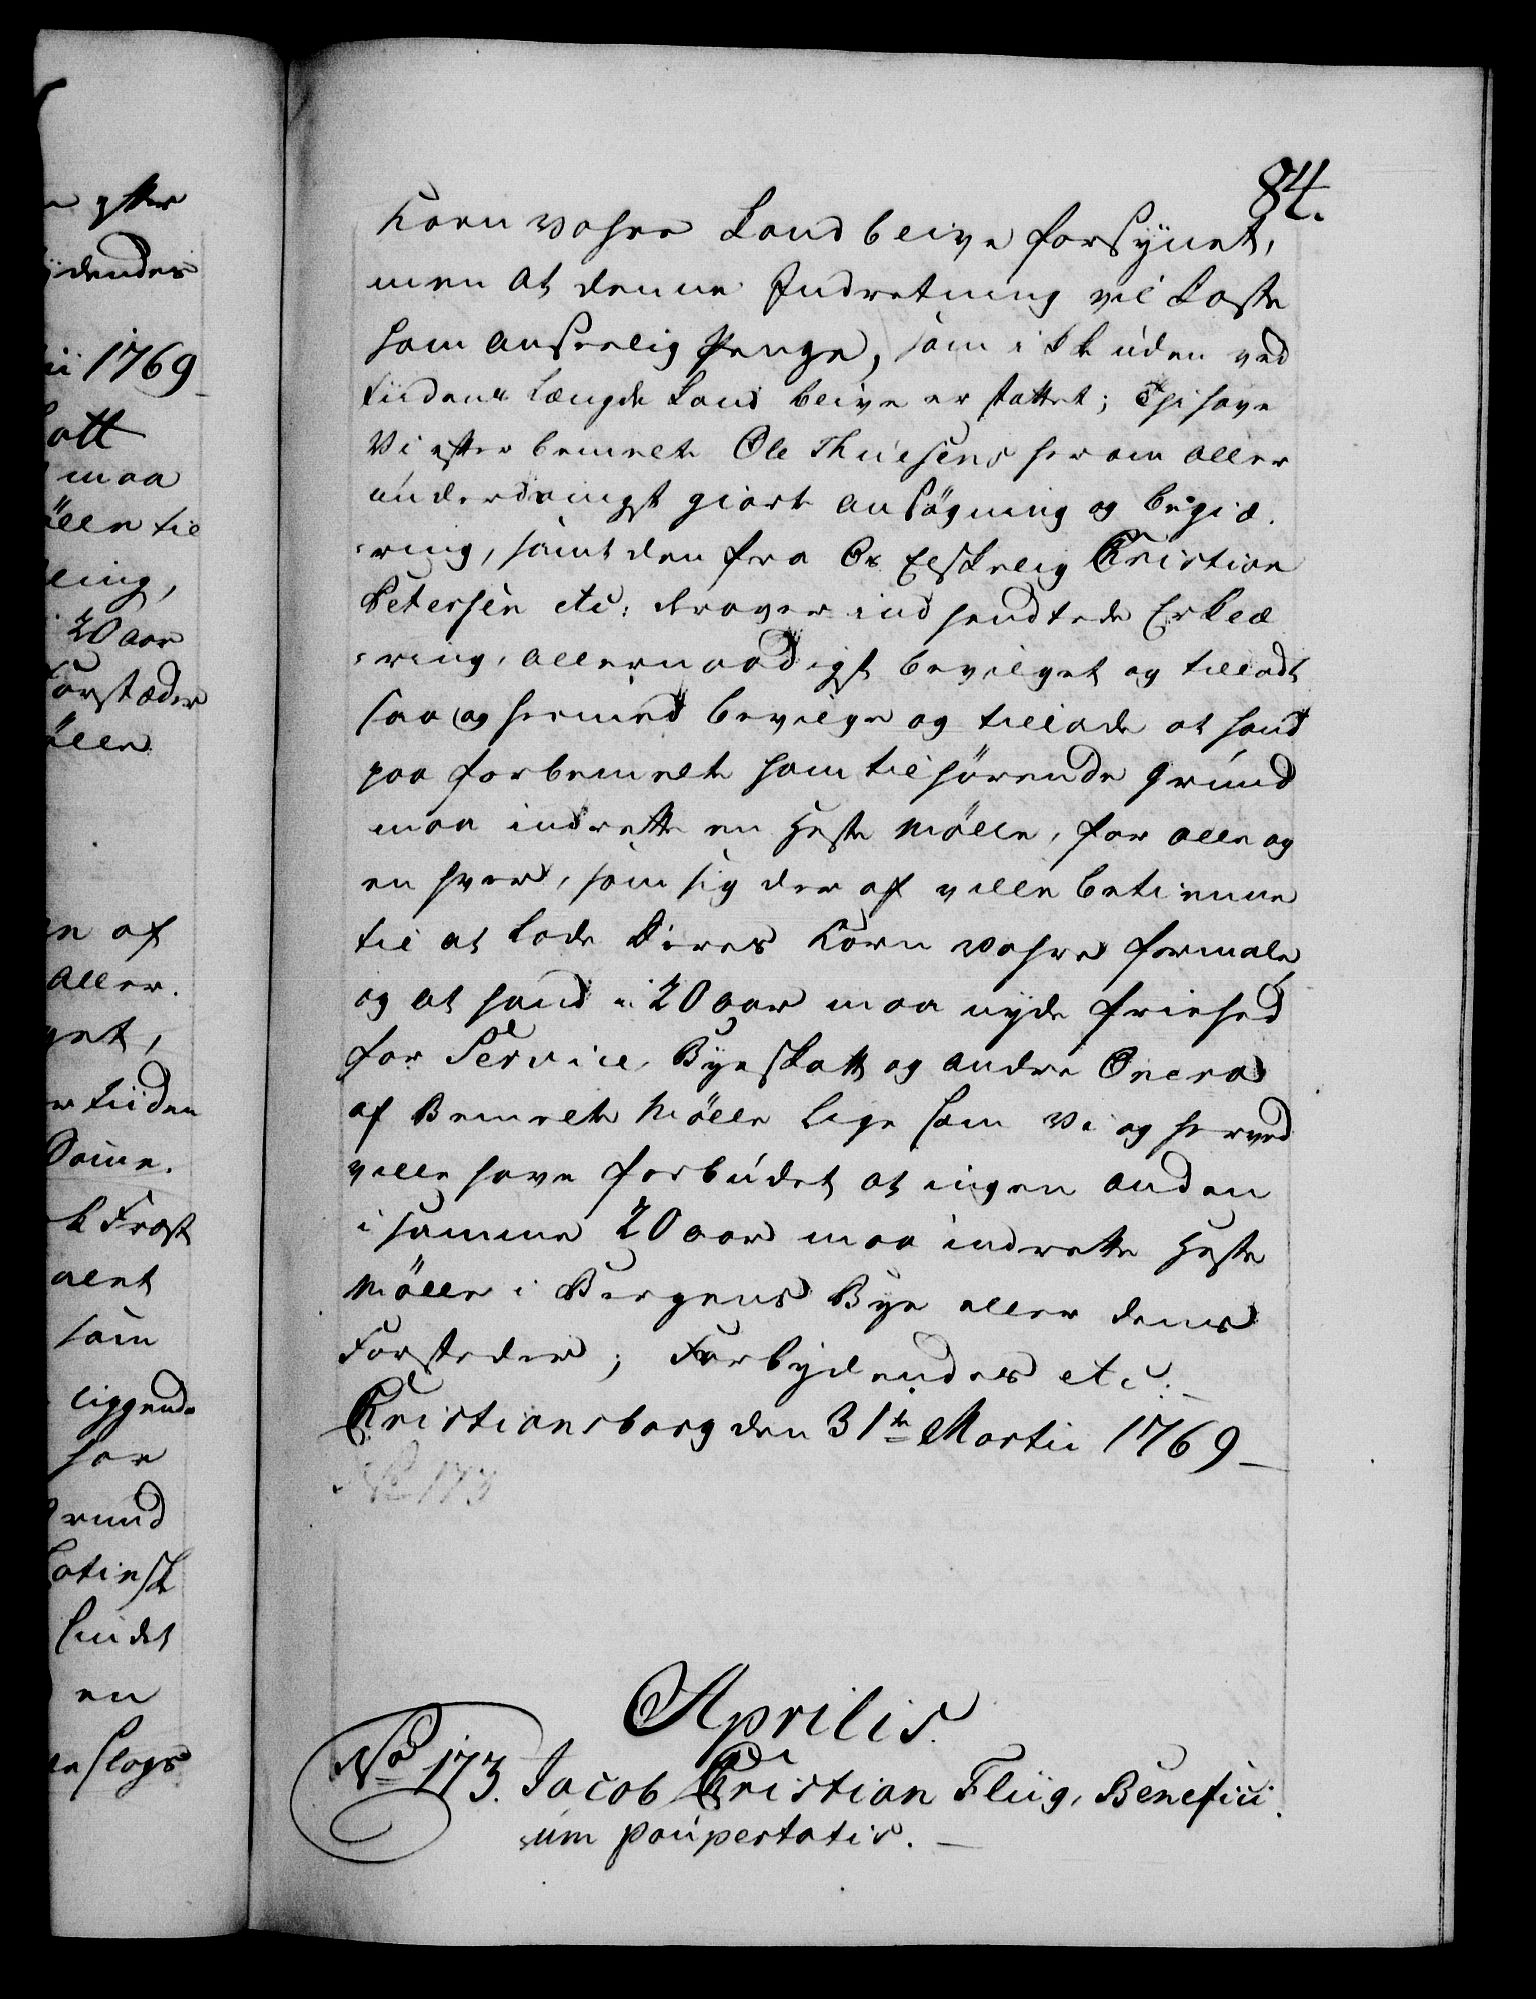 84.
Korn Vahre kand blive forsÿnet,
men at denne Indretning vil koste
ham anseelig Penge, som ikke uden ved
tiidens Længde kand blive erstattet; Thi have
Vi efter bemelte Ole Thuesens herom aller
underdanigst giorte ansögning og begiæ
ring, samt den fra Os Elskelig Christian
Petersen etc: derover indsendte Erklæ
ring, allernaadigst bevilget og tilladt
saa og hermed bevilge og tillade at hand
paa forbemelte ham tilhörende grund
maa indrette en Heste Mölle, for alle og
en hver, som sig der af ville betienne
til at lade deres Korn Vahre formale
og at hand i 20 aar maa nyde friehed
for Service, Byeskatt og andre Onera
af Bemelte Mölle lige som Vi og herved
ville have forbudet at ingen anden
i samme 20 aar maa indrette Heste
Mölle i Bergens Bye eller dens
Forstæder; Forbydendes etc:
Christiansborg den 31te Martii 1769
No 173
Aprilis.
No 173. Jacob Christian Flüg, Benefici
um paupertatis.
efter
ydendes
ii 1769
att
maa
ölle til
ling,
20 aar
Forstæder
ölle
en af
Aller
get,
tiiden
k Frost
som
liggende
har
Grund
Latinsk
en